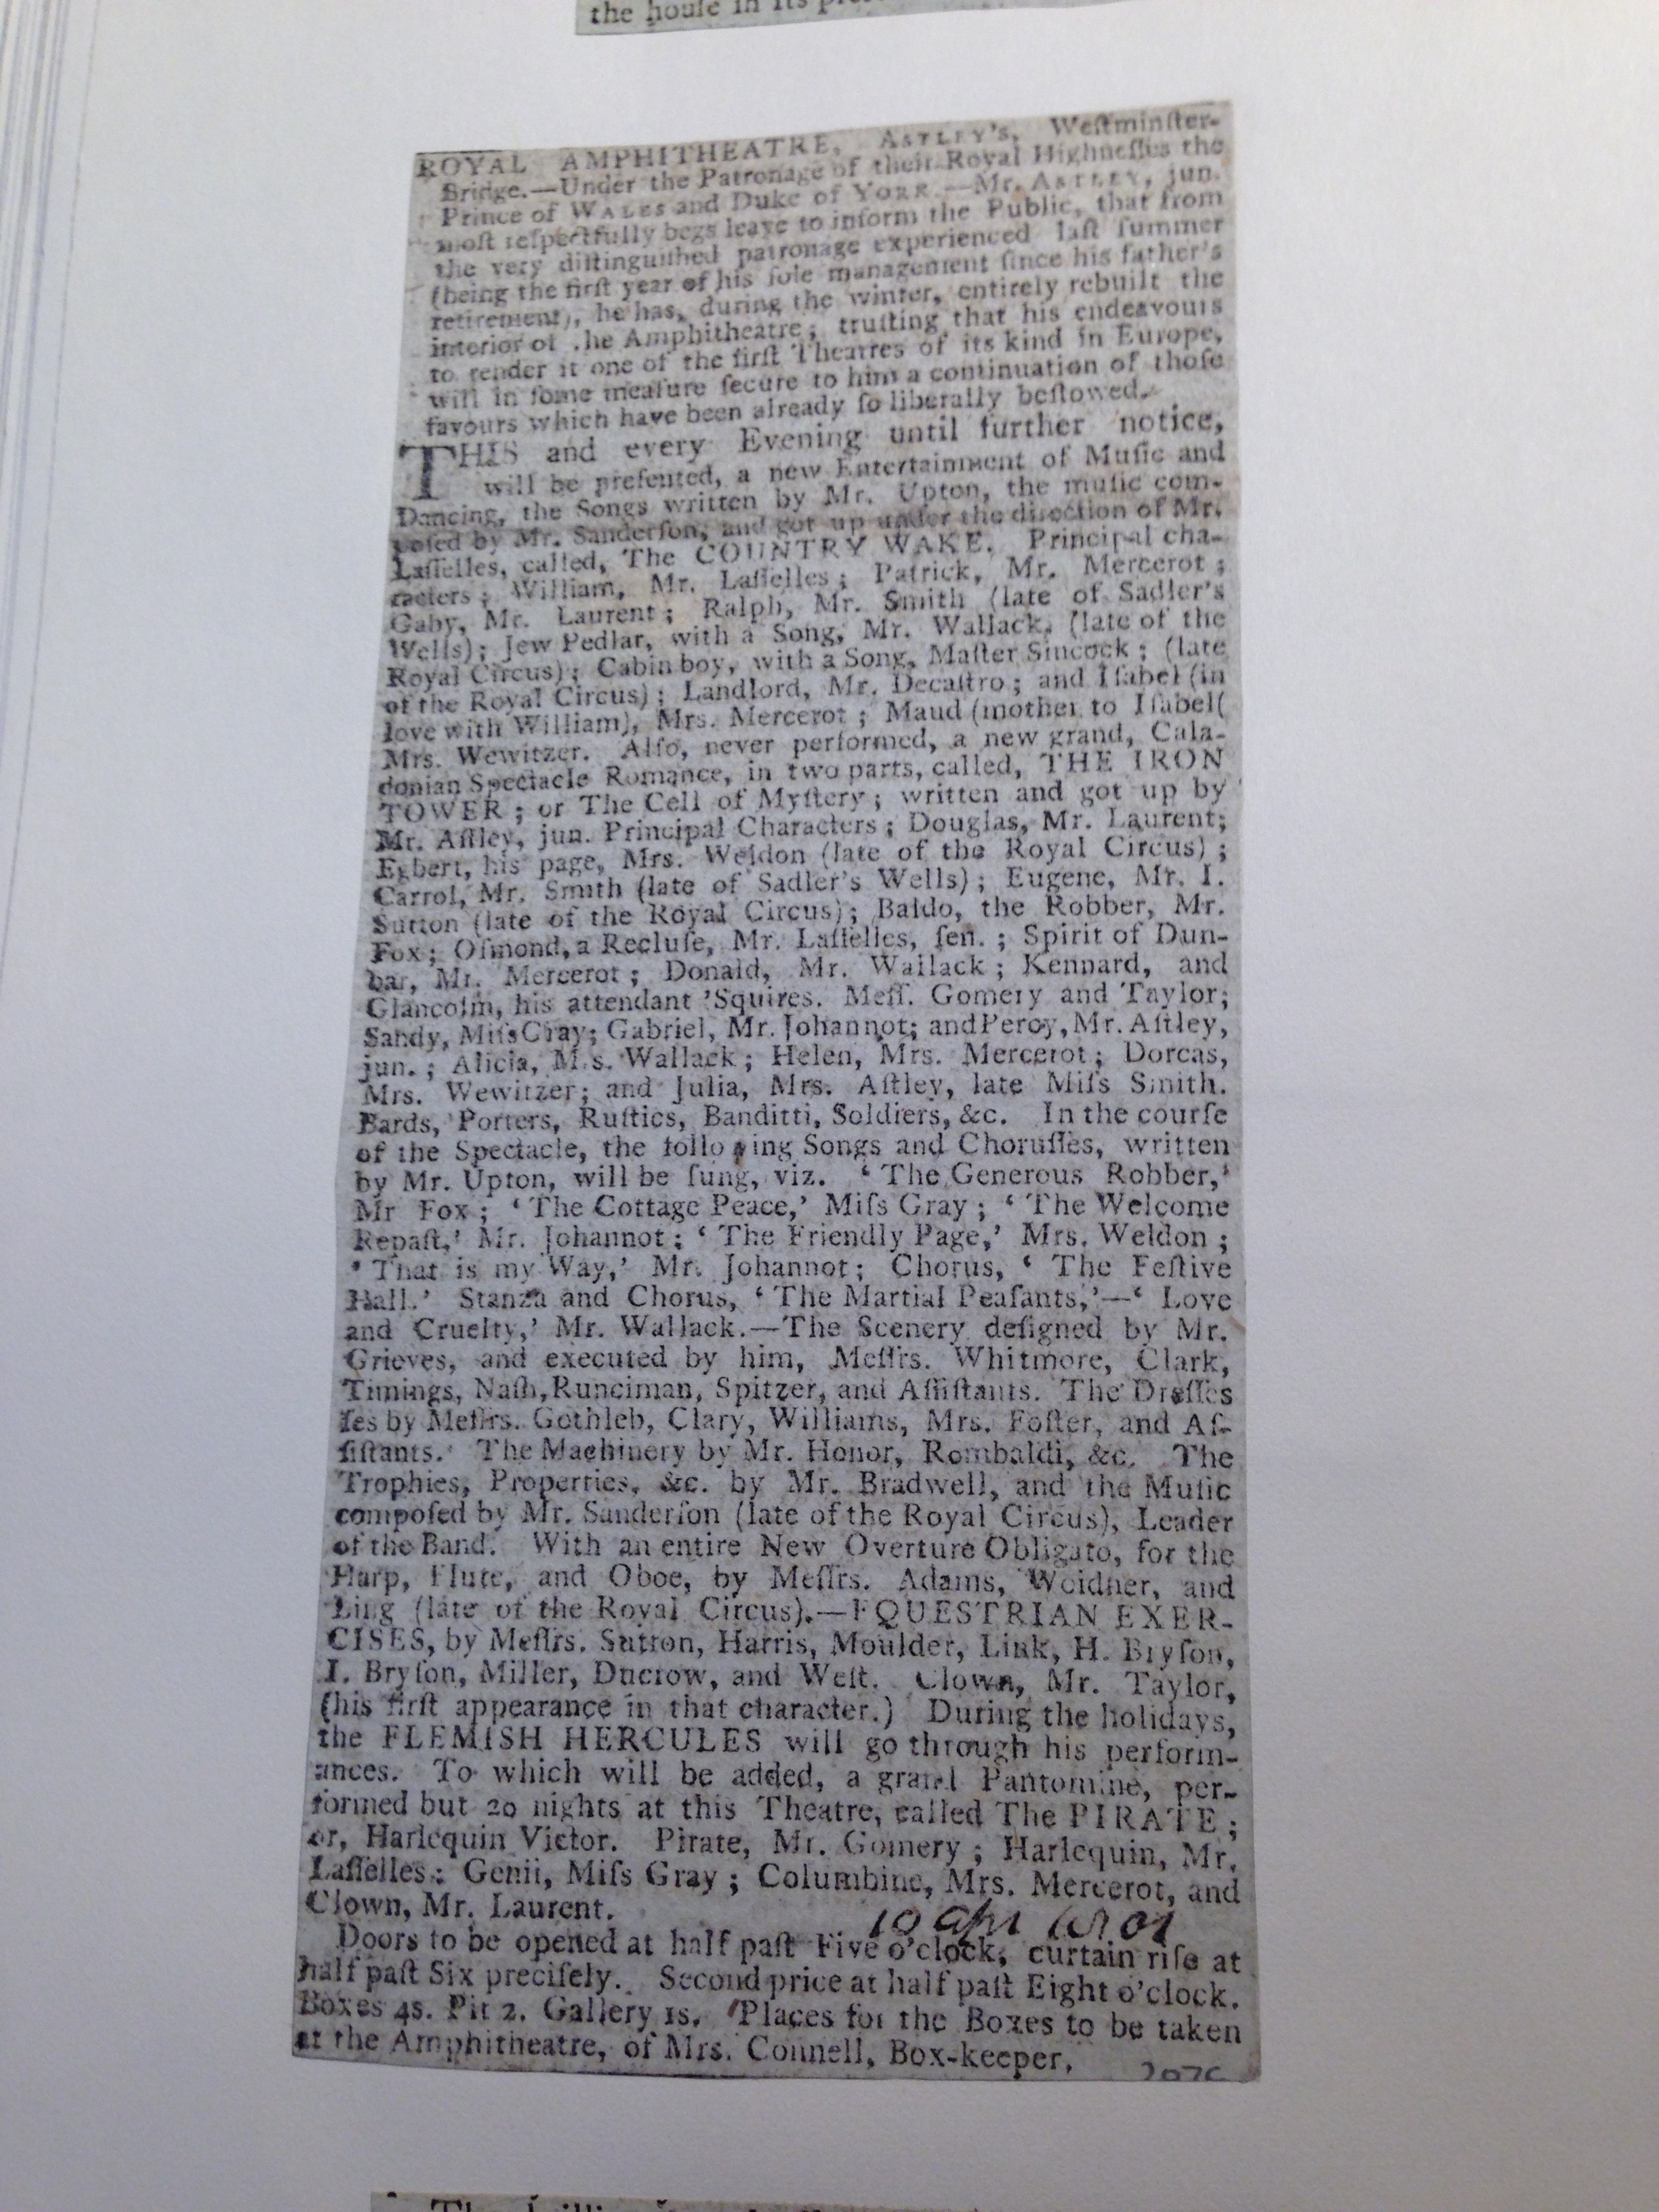 the houſe in its
ROYAL AMPHITHEATRE, ASTLEY's, Weſtminſter-
Bridge.—Under the Patronage of their Royal Highneſſes the
Prince of WALES and Duke of YORK.—Mr. ASTLEY, jun.
moſt reſpectfully begs leave to inform the Public, that from
the very diſtinguiſhed patronage experienced laſt ſummer
(being the firſt year of his ſole management ſince his father's
retirement), he has, during the winter, entirely rebuilt the
interior of .he Amphitheatre; truſting that his endeavours
to render it one of the firſt Theatres of its kind in Europe,
will in ſome meaſure ſecure to him a continuation of thoſe
favours which have been already ſo liberally beſtowed.
THIS and every Evening until further notice,
will be preſented, a new Entertainment of Muſic and
Dancing, the Songs written by Mr. Upton, the muſic com-
poſed by Mr. Sanderſon, and got up under the direction of Mr.
Laſſelles, called, The COUNTRY WAKE. Principal cha-
racters; William, Mr. Laſſelles; Patrick, Mr. Mercerot;
Gaby, Mr. Laurent; Ralph, Mr. Smith (late of Sadler's
Wells); Jew Pedlar, with a Song, Mr. Wallack, (late of the
Royal Circus); Cabin boy, with a Song, Maſter Sincock; (late
of the Royal Circus); Landlord, Mr. Decaſtro; and Iſabel (in
love with William), Mrs. Mercerot; Maud (mother to Iſabel(
Mrs. Wewitzer. Alſo, never performed, a new grand, Cala-
donian Spectacle Romance, in two parts, called, THE IRON
TOWER; or The Cell of Myſtery; written and got up by
Mr. Aſtley, jun. Principal Characters; Douglas, Mr. Laurent;
Egbert, his page, Mrs. Weldon (late of the Royal Circus);
Carrol, Mr. Smith (late of Sadler's Wells); Eugene, Mr. I.
Sutton (late of the Royal Circus); Baldo, the Robber, Mr.
Fox; Oſmond, a Recluſe, Mr. Laſſelles, ſen.; Spirit of Dun-
bar, Mr. Mercerot; Donald, Mr. Wallack; Kennard, and
Glancolm, his attendant 'Squires. Meſſ. Gomery and Taylor;
Sandy, Miſs Gray; Gabriel, Mr. Johannot; and Percy, Mr. Aſtley,
jun.; Alicia, M.s. Wallack; Helen, Mrs. Mercerot; Dorcas,
Mrs. Wewitzer; and Julia, Mrs. Aſtley, late Miſs Smith.
Bards, Porters, Ruſtics, Banditti, Soldiers, &c. In the courſe
of the Spectacle, the following Songs and Choruſſes, written
by Mr. Upton, will be ſung, viz. ‘ The Generous Robber,’
Mr Fox; ‘ The Cottage Peace,’ Miſs Gray; ‘ The Welcome
Repaſt,’ Mr. Johannot; ‘ The Friendly Page,’ Mrs. Weldon;
‘ That is my Way,’ Mr. Johannot; Chorus, ‘ The Feſtive
Hall.’ Stanza and Chorus, ‘ The Martial Peaſants,’—‘ Love
and Cruelty,’ Mr. Wallack.—The Scenery deſigned by Mr.
Grieves, and executed by him, Meſſrs. Whitmore, Clark,
Timings, Naſh, Runciman, Spitzer, and Aſſiſtants. The Dreſſes
ſes by Meſſrs. Gothleb, Clary, Williams, Mrs. Foſter, and Aſ-
ſiſtants. The Machinery by Mr. Honor, Rombaldi, &c. The
Trophies, Properties, &c. by Mr. Bradwell, and the Muſic
compoſed by Mr. Sanderſon (late of the Royal Circus), Leader
of the Band. With an entire New Overture Obligato, for the
Harp, Flute, and Oboe, by Meſſrs. Adams, Weidner, and
Ling (late of the Royal Circus).—EQUESTRIAN EXER-
CISES, by Meſſrs. Sutton, Harris, Moulder, Link, H. Bryſon,
I. Bryſon, Miller, Ducrow, and Weſt. Clown, Mr. Taylor,
(his firſt appearance in that character.) During the holidays,
the FLEMISH HERCULES will go through his perform-
ances. To which will be added, a grand Pantomine, per-
formed but 20 nights at this Theatre, called The PIRATE;
or, Harlequin Victor. Pirate, Mr. Gomery; Harlequin, Mr.
Laſſelles; Genii, Miſs Gray; Columbine, Mrs. Mercerot, and
Clown, Mr. Laurent.
10 Apr
Doors to be opened at half paſt Five o'clock, curtain riſe at
half paſt Six preciſely. Second price at half paſt Eight o'clock.
Boxes 4s. Pit 2. Gallery 1s. Places for the Boxes to be taken
at the Amphitheatre, of Mrs. Connell, Box-keeper.